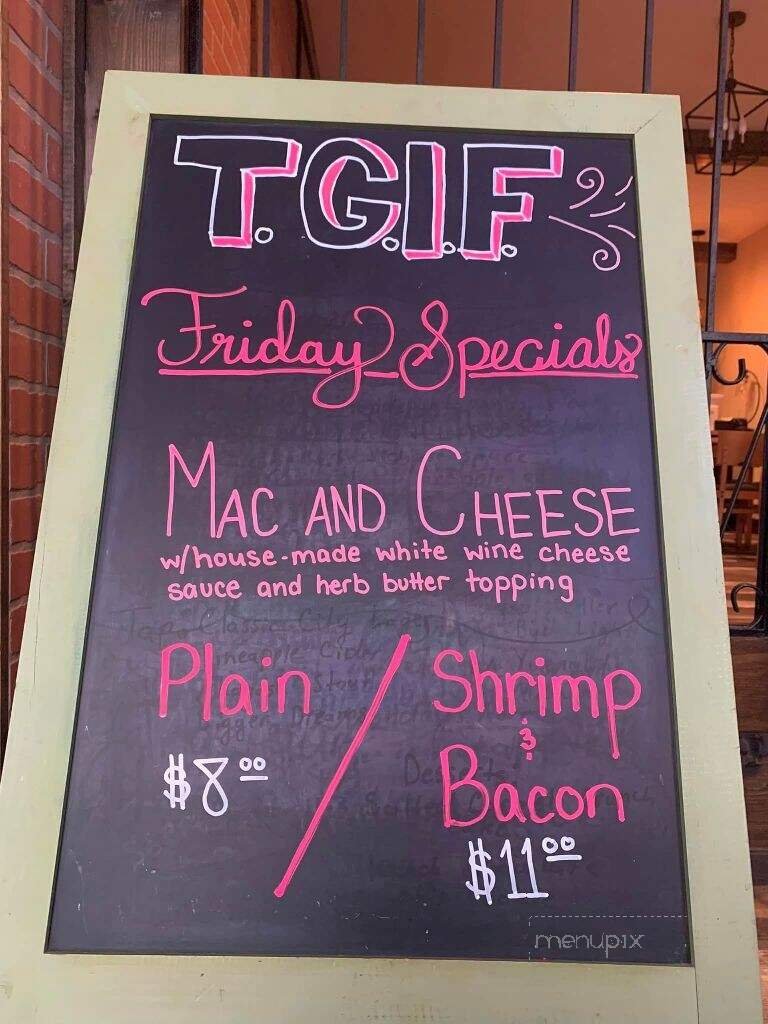 T.G.I.F.
Friday Specials
MAC AND CHEESE
w/house-made white wine cheese
sauce and herb butter topping
Plain / Shrimp
&
Bacon
$8.00
$11.00
menupix